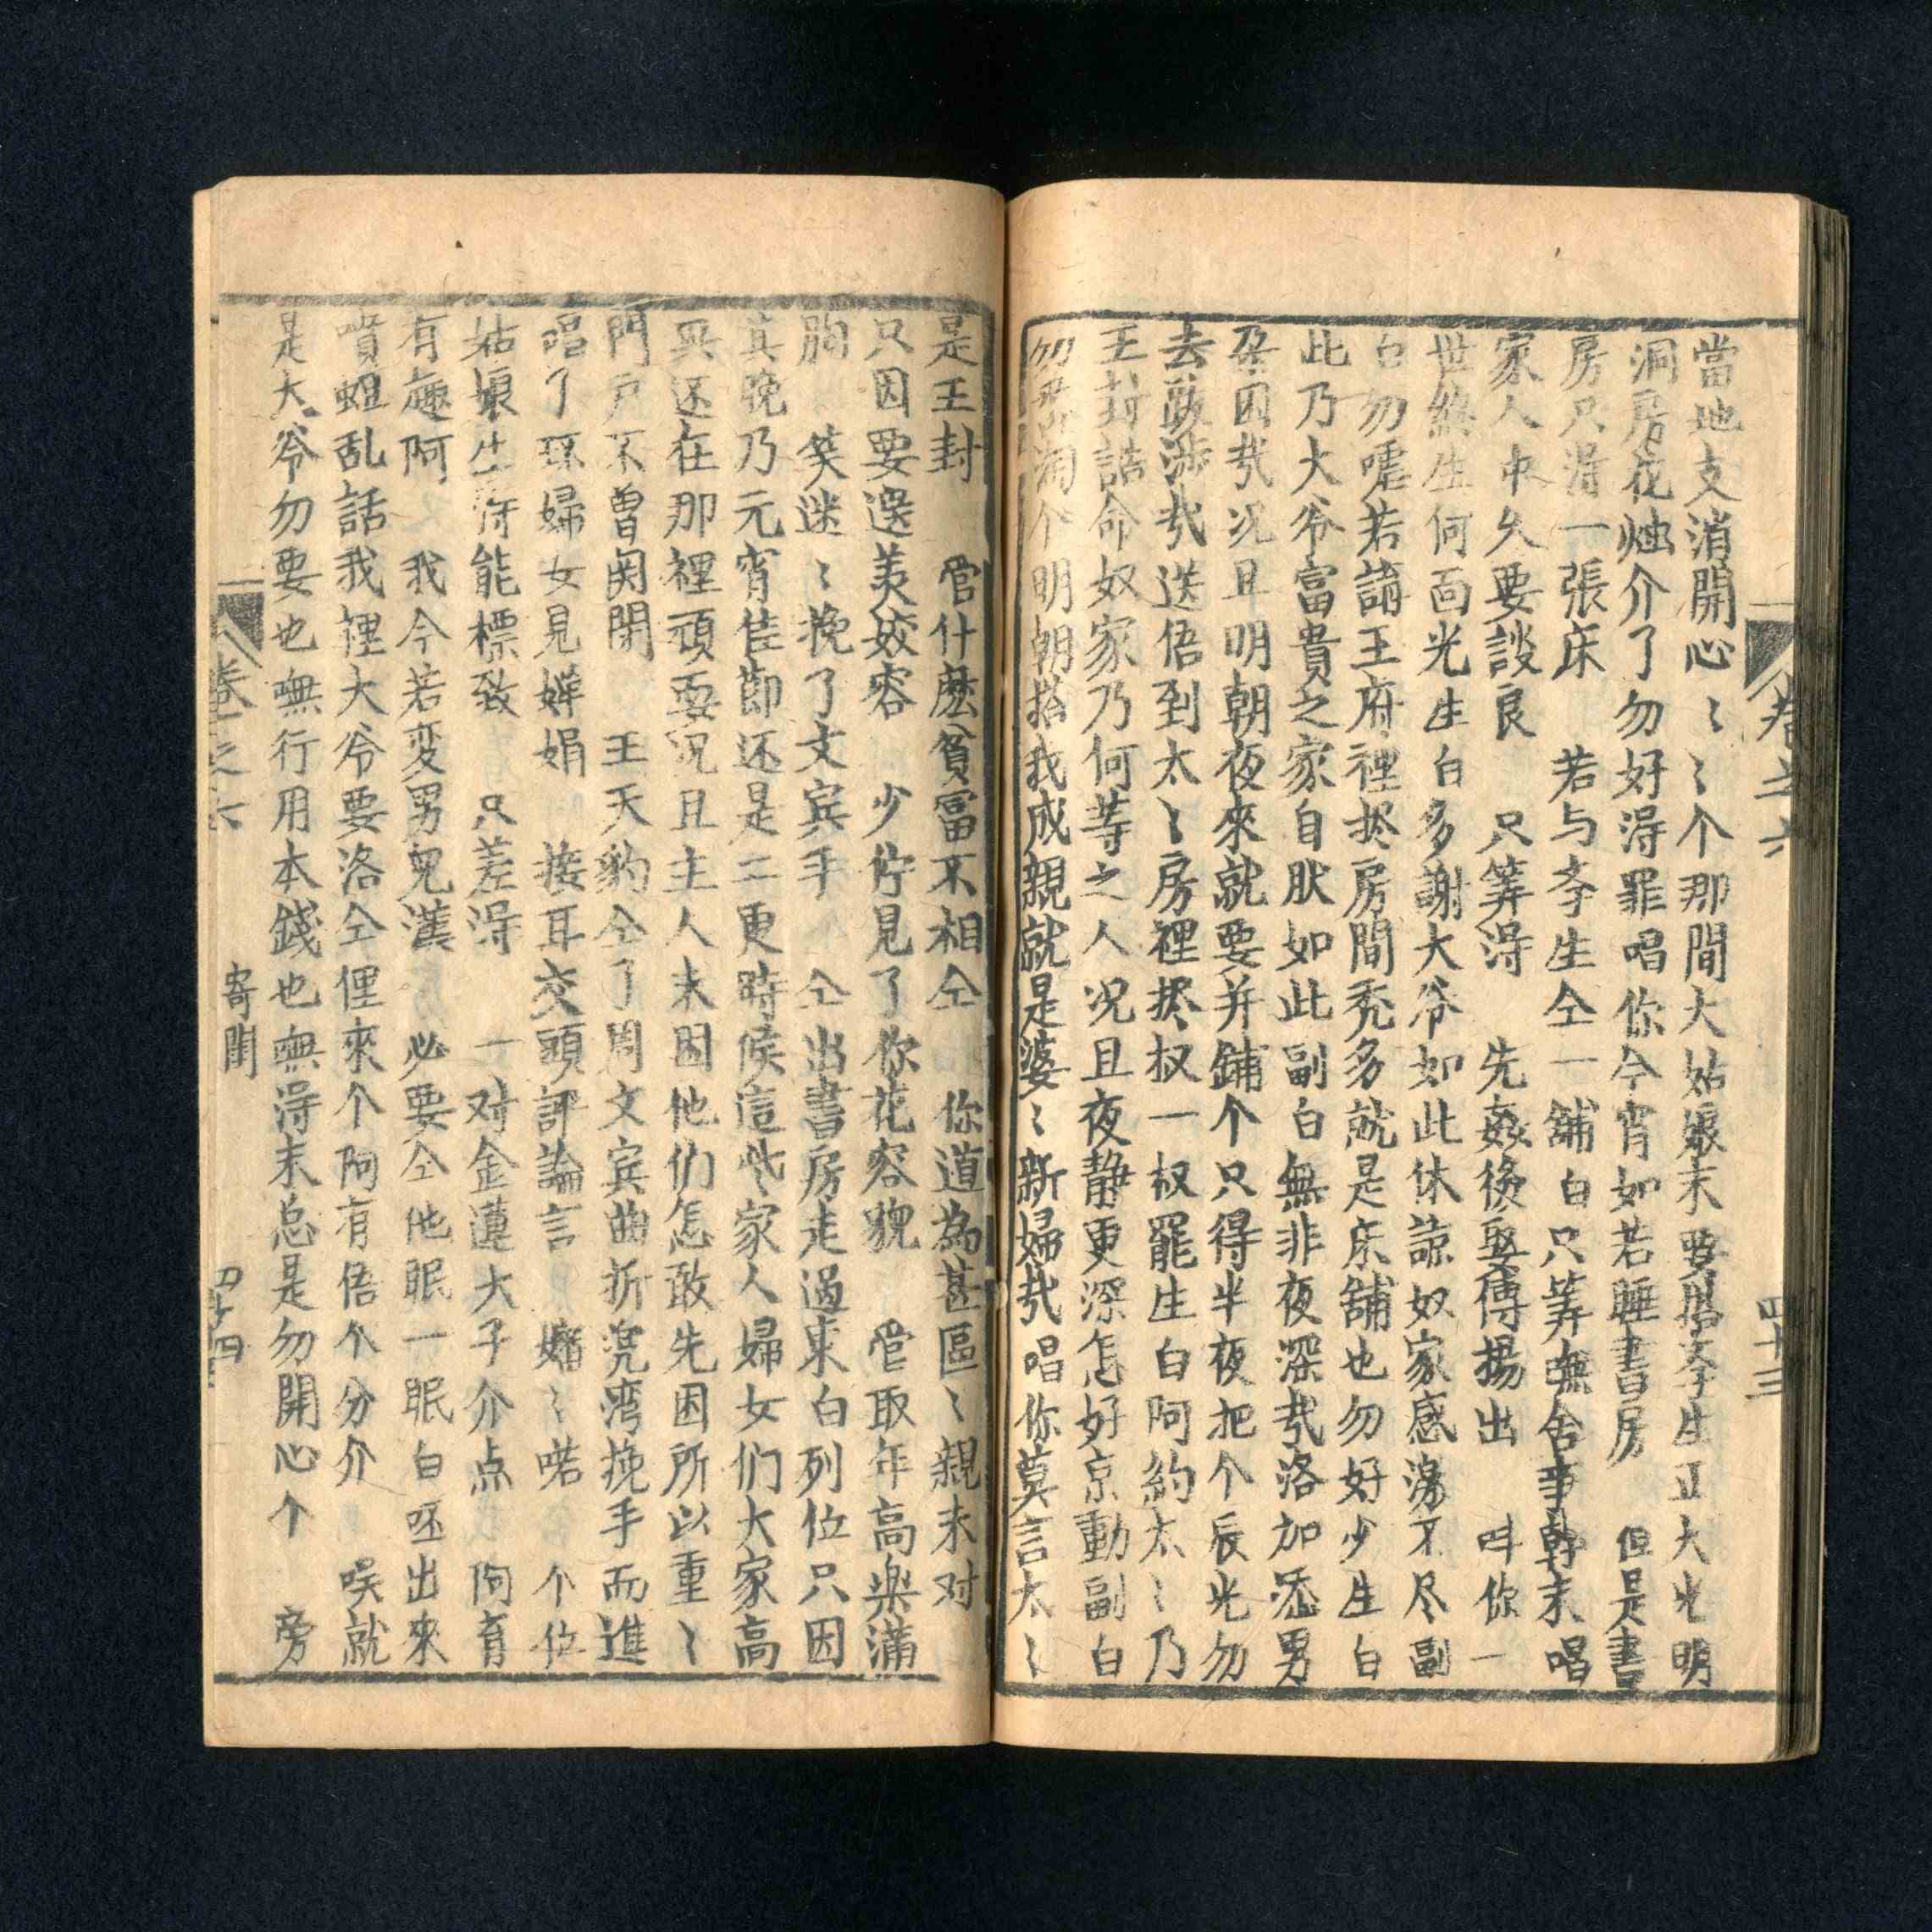 當地支消開心〻〻个那間大姑娘末要搭李生正大光明
洞房花燭介了勿好得罪唱你今宵如若睡書房　但是書
房只得一張床　若与李生仝一舖白只筭嘸舍事幹末唱
家人中久要談良　只筭得　先姦後娶傳揚出　叫你一
世終生何面光生白多謝大爷如此休諒奴家感激不尽副
白勿嘘若講王府裡扵房間禿多就是床舖也勿好少生白
此乃大爷富貴之家自肰如此副白無非夜深㢤洛加添男
孕困㢤况且明朝夜來就要并鋪个只得半夜把个辰光勿
去敲涉㢤送俉到太〻房裡扵杈一杈罷生白阿約太〻乃
王封誥命奴家乃何等之人况且夜静更深怎好京動副白
勿个明朝搭我成親就是婆〻新婦㢤唱你莫言太〻
是王封　管什麽貧富不相仝　你道為甚區〻親末对
只因要選美姣容　少停見了你花容貌　管取年高楽满
胸　笑迷〻挽了文宾手　仝出書房走過東白列位只因
真晚乃元宵佳節还是二更時候這些家人婦女们大家高
興还在那裡頑耍况且主人未困他们怎敢先困所以重〻
門户不曽関閉　王天豹仝了周文宾曲折湾湾挽手而進
唱了环婦女見婵娟　接耳交頭評論言　嬸〻喏　个位
姑娘生得能標致　只差得　一对金蓮大子介点　阿育
有趣阿　我今若変男兒漢　必要仝他眠一眠白呸出來
嚼蛆乱話我裡大爷要洛仝俚來个阿有俉个分介　唉就
是大爷勿要也嘸行用本錢也嘸得末总是勿開心个　旁
卷之六
四十三
卷之六
寄閨
四十四